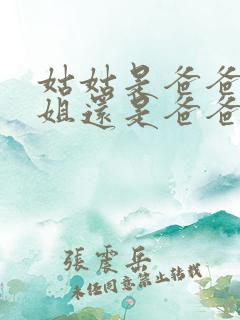 姑姑是爸爸
姐還是爸爸
張震岳
未經同意禁止轉載